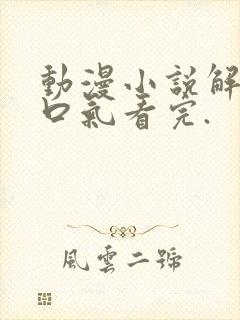 動漫小說解
口氣看完.
風雲二號